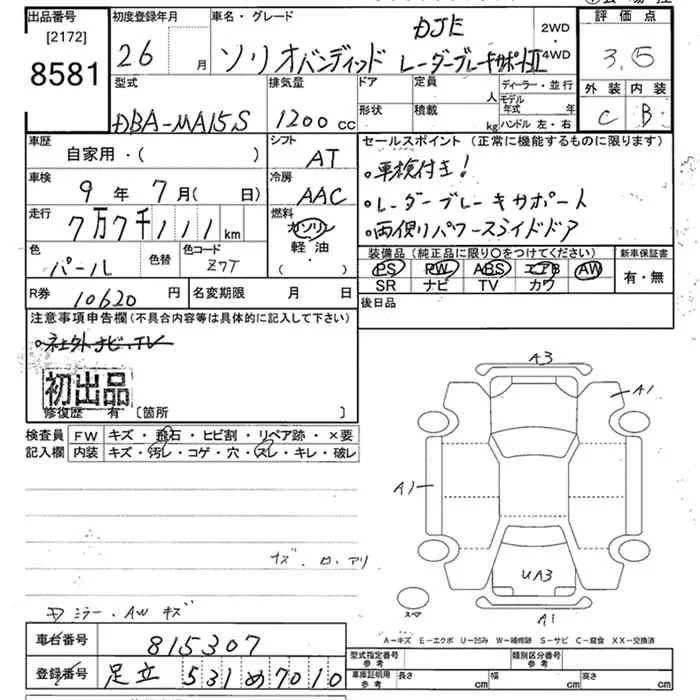 出品番号
[2172]
8581
初度登録年月
26 月
車名・グレード
DJE
ソリオバンディッド レーダーブレーキサポートII
2WD
4WD
評価点
3.5
外装 内装
C B
型式
DBA-MA15S
排気量
1200 cc
ドア 定員 人
形状 積載 kg
ディーラー・並行
モデル年式 年
ハンドル 左・右
車歴
自家用・( )
シフト
AT
セールスポイント(正常に機能するものに限ります)
・車検付き!
・レーダーブレーキサポート
・両側パワースライドドア
車検
9年 7月( 日)
冷房
AAC
走行
7万7千111 km
燃料
ガソリン
軽・油
( )
色
パール
色替
色コード
Z7T
装備品(純正品に限り○をつけてください)
PS PW ABS エアB AW
SR ナビ TV カワ
新車保証書
有・無
R券 10620 円
名変期限 月 日
後日品
注意事項申告欄(不具合内容等は具体的に記入して下さい)
・社外ナビ、TV
初出品
修復歴 有 [箇所 ]
検査員 FW キズ・飛石・ヒビ割・リペア跡・×要
記入欄 内装 キズ・汚レ・コゲ・穴・スレ・キレ・破レ
A3
A1
A1
UA3
A1
スペア
ミラー・AWキズ
A-キズ E-エクボ U-凹み W-補修跡 S-サビ C-腐食 XX-交換済
車台番号 815307
登録番号 足立 531 め 7010
型式指定番号
参考
類別区分番号
参考
車庫証明用
参考
長さ cm
幅 cm
高さ cm